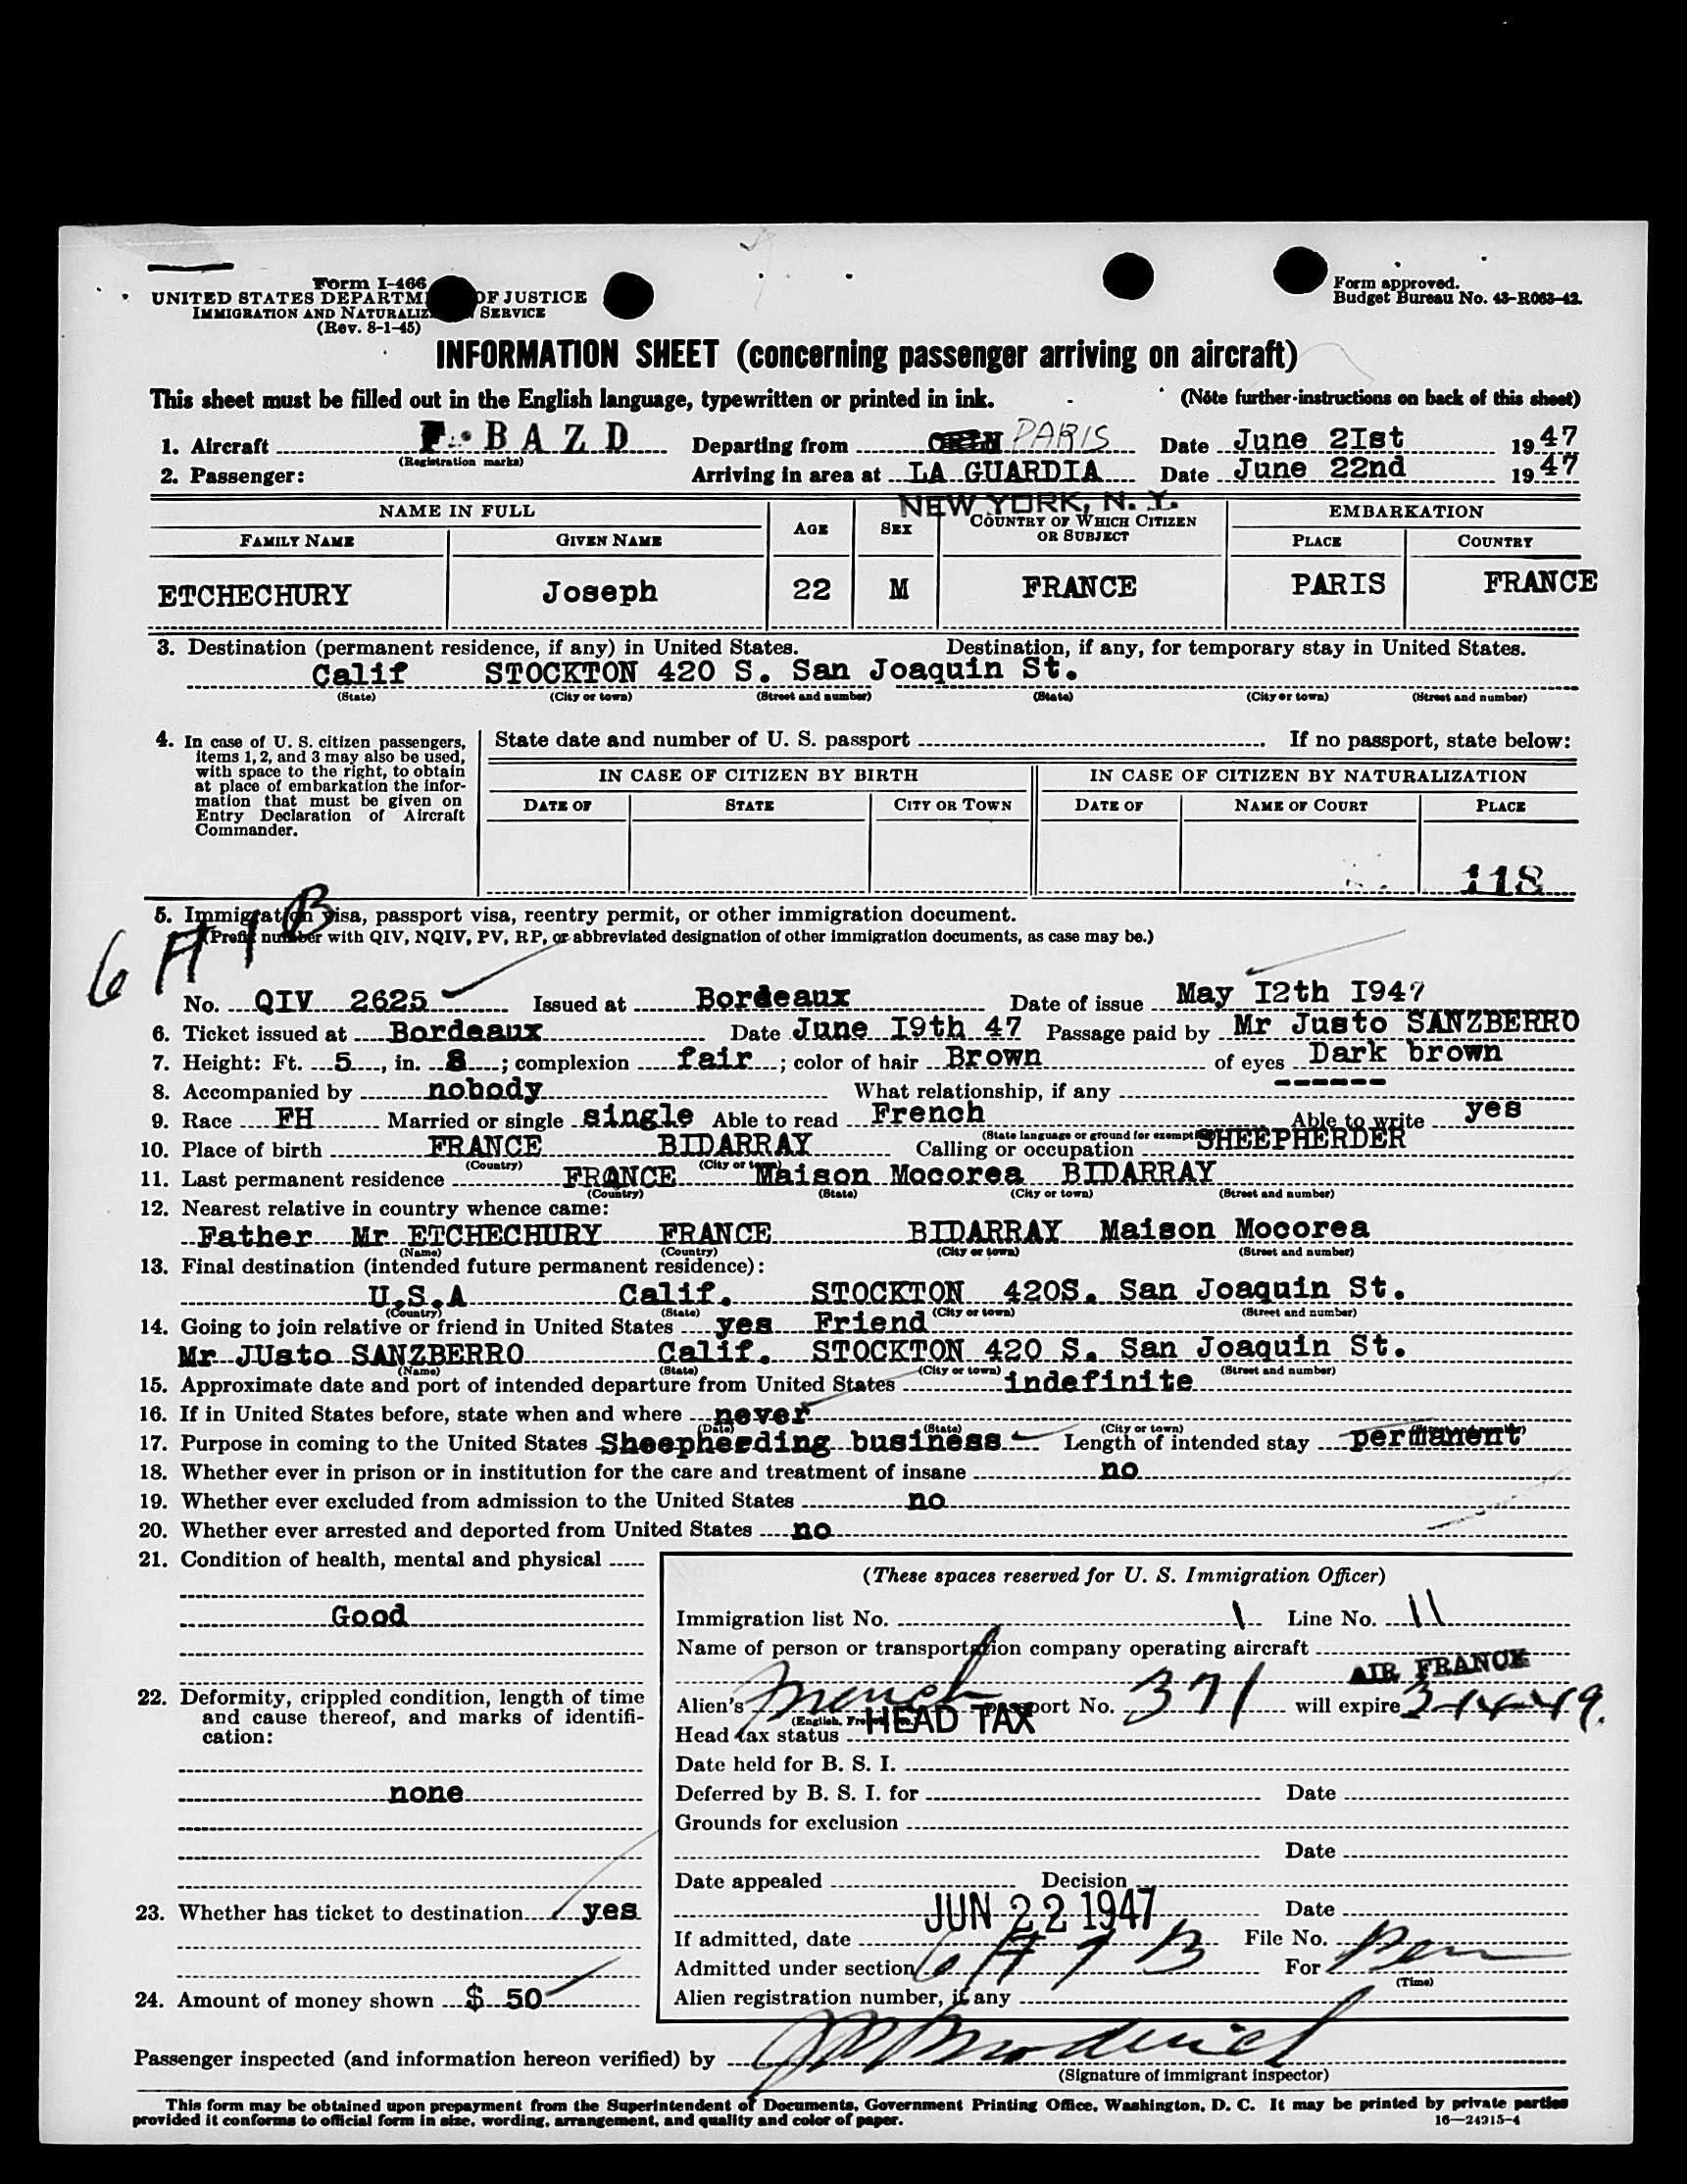 Form I-466
UNITED STATES DEPARTM OF JUSTICE
IMMIGRATION AND NATURALIZ SERVICE
(Rev. 8-1-45)
Form approved.
Budget Bureau No. 43-R063-42.
INFORMATION SHEET (concerning passenger arriving on aircraft)
This sheet must be filled out in the English language, typewritten or printed in ink. (Note further instructions on back of this sheet)
1. Aircraft F. B A Z D Departing from PARIS Date June 2Ist 19 47
(Registration marks)
2. Passenger: Arriving in area at LA GUARDIA Date June 22nd 19 47
NEW YORK, N. Y.
NAME IN FULL AGE SEX COUNTRY OF WHICH CITIZEN OR SUBJECT EMBARKATION
FAMILY NAME GIVEN NAME PLACE COUNTRY
ETCHECHURY Joseph 22 M FRANCE PARIS FRANCE
3. Destination (permanent residence, if any) in United States. Destination, if any, for temporary stay in United States.
Calif STOCKTON 420 S. San Joaquin St.
(State) (City or town) (Street and number) (State) (City or town) (Street and number)
4. In case of U. S. citizen passengers, items 1, 2, and 3 may also be used, with space to the right, to obtain at place of embarkation the information that must be given on Entry Declaration of Aircraft Commander.
State date and number of U. S. passport . If no passport, state below:
IN CASE OF CITIZEN BY BIRTH IN CASE OF CITIZEN BY NATURALIZATION
DATE OF STATE CITY OR TOWN DATE OF NAME OF COURT PLACE
118
5. Immigration visa, passport visa, reentry permit, or other immigration document.
(Prefix number with QIV, NQIV, PV, RP, or abbreviated designation of other immigration documents, as case may be.)
6 A 1 B
No. QIV 2625 Issued at Bordeaux Date of issue May I2th I947
6. Ticket issued at Bordeaux Date June I9th 47 Passage paid by Mr Justo SANZBERRO
7. Height: Ft. 5, in. 8; complexion fair; color of hair Brown of eyes Dark brown
8. Accompanied by nobody What relationship, if any ------
9. Race FH Married or single single Able to read French Able to write yes
(State language or ground for exemption)
10. Place of birth FRANCE BIDARRAY Calling or occupation SHEEPHERDER
(Country) (City or town)
11. Last permanent residence FRANCE Maison Mocorea BIDARRAY
(Country) (State) (City or town) (Street and number)
12. Nearest relative in country whence came:
Father Mr ETCHECHURY FRANCE BIDARRAY Maison Mocorea
(Name) (Country) (City or town) (Street and number)
13. Final destination (intended future permanent residence):
U.S.A Calif. STOCKTON 420S. San Joaquin St.
(Country) (State) (City or town) (Street and number)
14. Going to join relative or friend in United States yes Friend
Mr JUsto SANZBERRO Calif. STOCKTON 420 S. San Joaquin St.
(Name) (State) (City or town) (Street and number)
15. Approximate date and port of intended departure from United States indefinite
16. If in United States before, state when and where never
(Date) (State) (City or town)
17. Purpose in coming to the United States Sheepherding business Length of intended stay permanent
18. Whether ever in prison or in institution for the care and treatment of insane no
19. Whether ever excluded from admission to the United States no
20. Whether ever arrested and deported from United States no
21. Condition of health, mental and physical
Good
22. Deformity, crippled condition, length of time and cause thereof, and marks of identification:
none
23. Whether has ticket to destination yes
24. Amount of money shown $ 50
(These spaces reserved for U. S. Immigration Officer)
Immigration list No. 1 Line No. 11
Name of person or transportation company operating aircraft
AIR FRANCE
Alien's French passport No. 371 will expire 3-14-49.
Head tax status HEAD TAX
Date held for B. S. I.
Deferred by B. S. I. for Date
Grounds for exclusion
Date
Date appealed Decision
Date
JUN 22 1947
If admitted, date File No.
Admitted under section 6 A 1 B For Per
(Time)
Alien registration number, if any
Passenger inspected (and information hereon verified) by
(Signature of immigrant inspector)
This form may be obtained upon prepayment from the Superintendent of Documents, Government Printing Office, Washington, D. C. It may be printed by private parties
provided it conforms to official form in size, wording, arrangement, and quality and color of paper. 16—24915-4